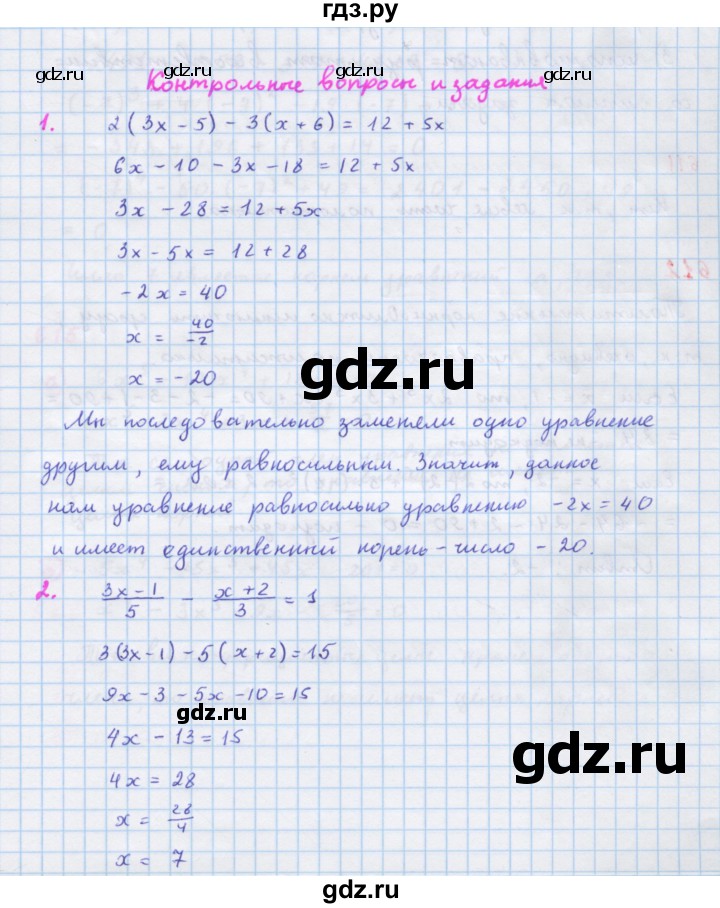 гдз.ру
gdz.ru gdz.ru gdz.ru
Контрольные вопросы и задания
1. 2(3x - 5) - 3(x + 6) = 12 + 5x
6x - 10 - 3x - 18 = 12 + 5x
3x - 28 = 12 + 5x
3x - 5x = 12 + 28
-2x = 40
x = 40/-2
gdz.ru gdz.ru
x = -20
Мы последовательно заменяли одно уравнение
другим, ему равносильным. Значит, данное
gdz.ru gdz.ru gdz.ru
нам уравнение равносильно уравнению -2x = 40
и имеет единственный корень - число - 20.
2. (3x - 1)/5 - (x + 2)/3 = 1
3(3x-1) - 5(x+2) = 15
9x - 3 - 5x - 10 = 15
gdz.ru
4x - 13 = 15
gdz.ru
4x = 28
x = 28/4
x = 7
gdz.ru